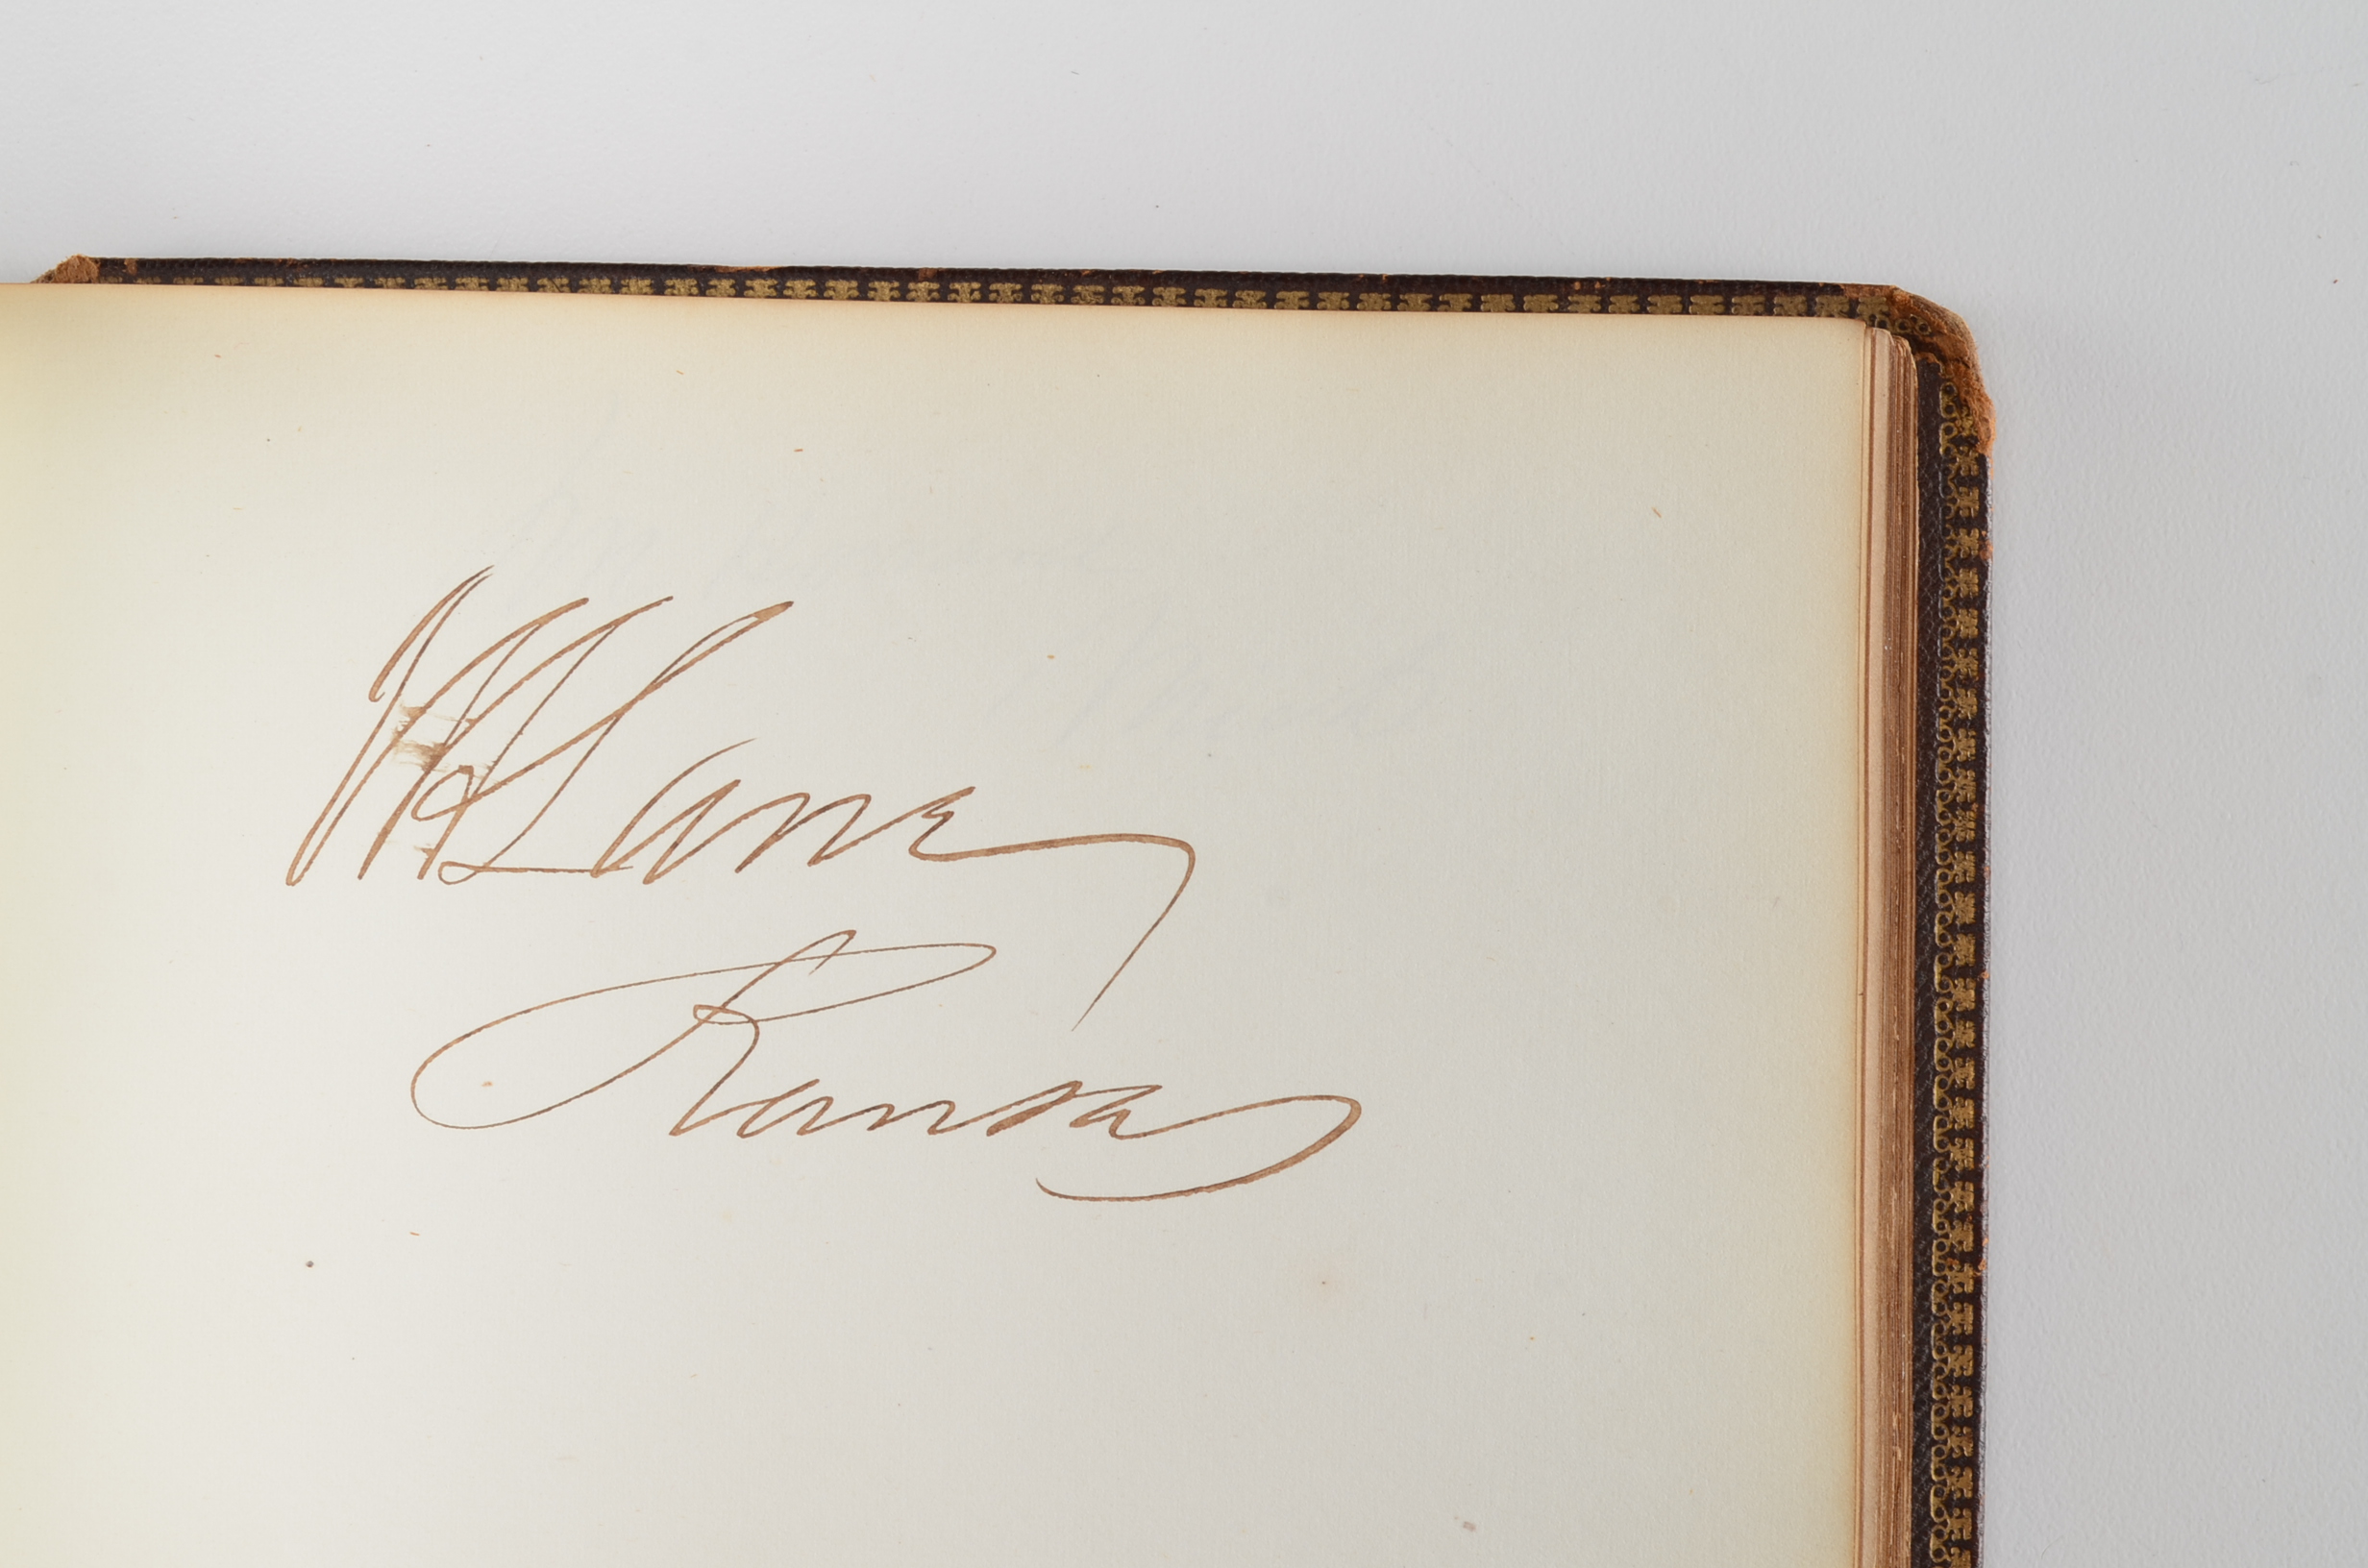 J H Lane
Kansas